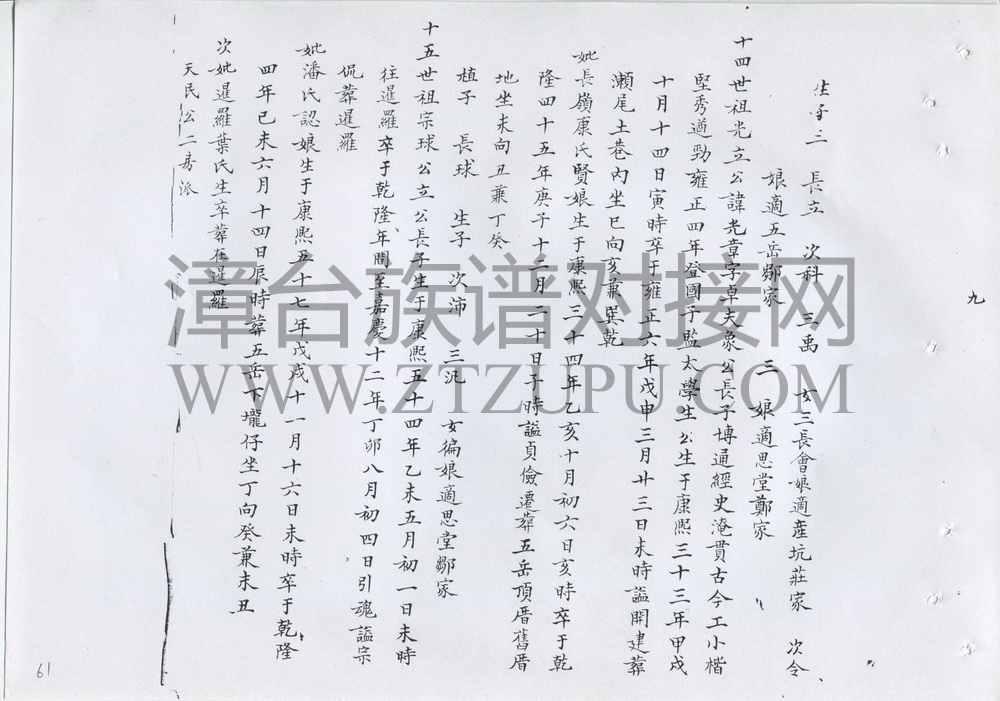 九
生子三　長立　次科　三禹　女三長會娘適産坑莊家　次令
娘適五岳鄒家　三　娘適思堂鄭家
十四世祖光立公諱光章字卓夫象公長子博通經史淹貫古今工小楷
堅秀遒勁雍正四年登國子監太學生公生于康熙三十三年甲戌
十月十四日寅時卒于雍正六年戊申三月廿三日未時謚開建葬
瀨尾土巷內坐巳向亥兼巽乾
妣長嶺康氏賢娘生于康熙三十四年乙亥十月初六日亥時卒于乾
隆四十五年庚子十二月二十日子時謚貞儉遷葬五岳頂厝舊厝
地坐未向丑兼丁癸
植子　長球　生子　次沛　三汎　女徧娘適思堂鄒家
十五世祖宗球公立公長子生于康熙五十四年乙未五月初一日未時
往暹羅卒于乾隆年間至嘉慶十二年丁卯八月初四日引魂謚宗
侃葬暹羅
妣潘氏認娘生于康熙五十七年戊戌十一月十六日未時卒于乾隆
四年己未六月十四日辰時葬五岳下壠仔坐丁向癸兼未丑
次妣暹羅葉氏生卒葬在暹羅
天民公二房派
61
漳台族谱对接网
WWW.ZTZUPU.COM